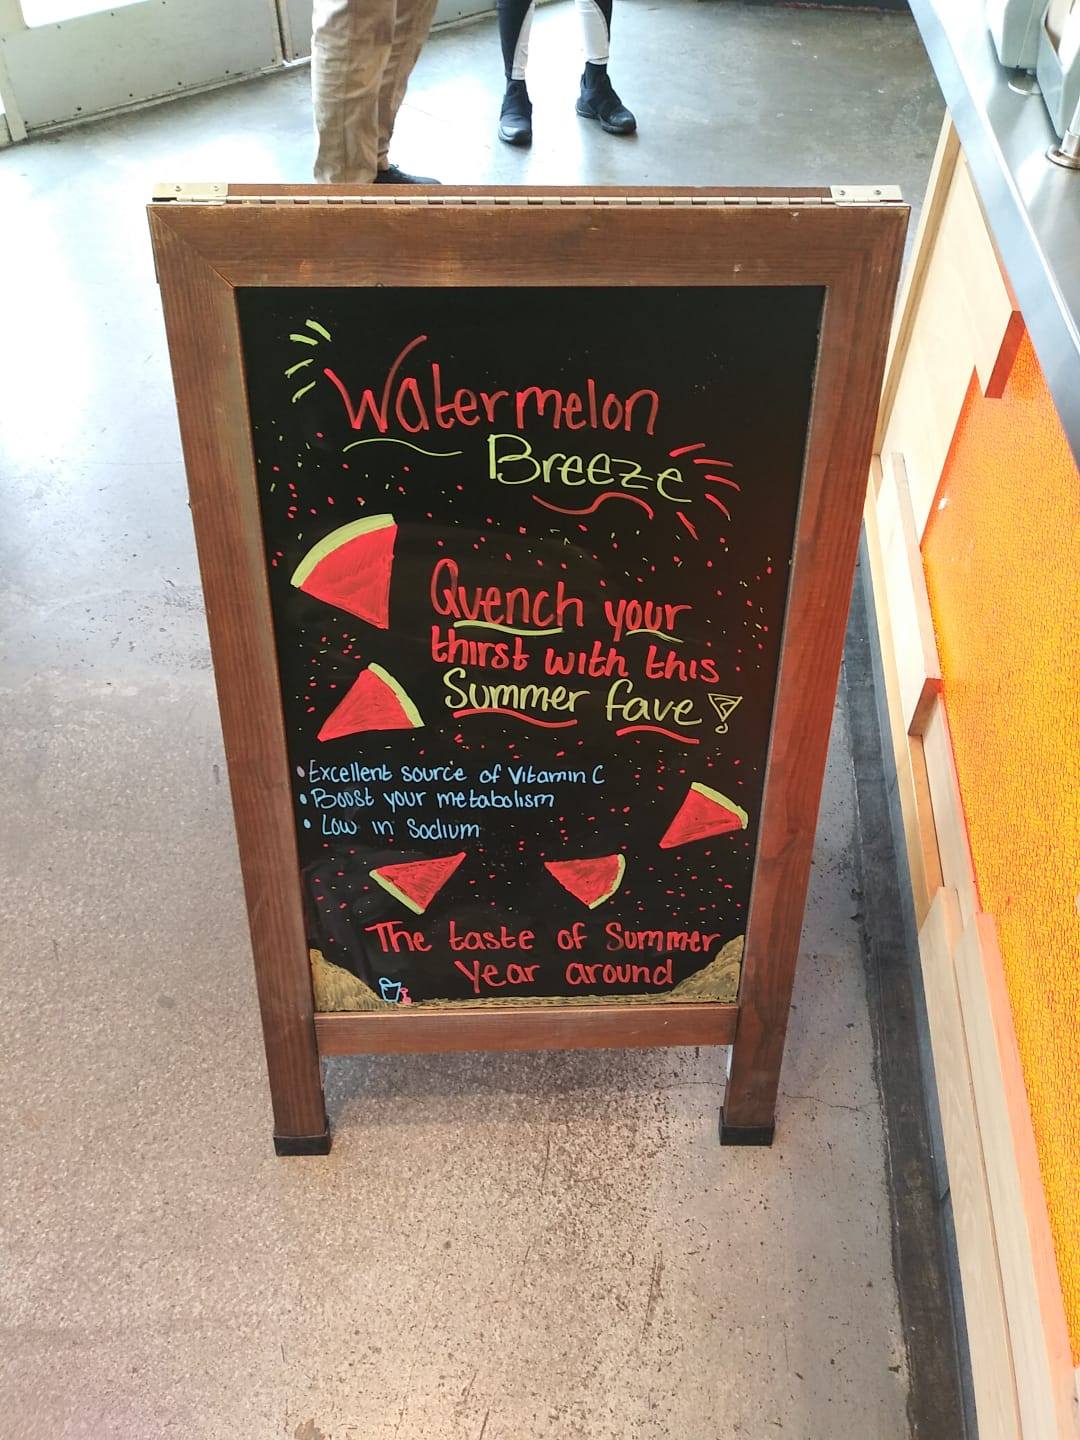 Watermelon
Breeze
Quench your
thirst with this
Summer fave!
• Excellent source of Vitamin C
• Boost your metabolism
• Low in Sodium
The taste of Summer
Year around